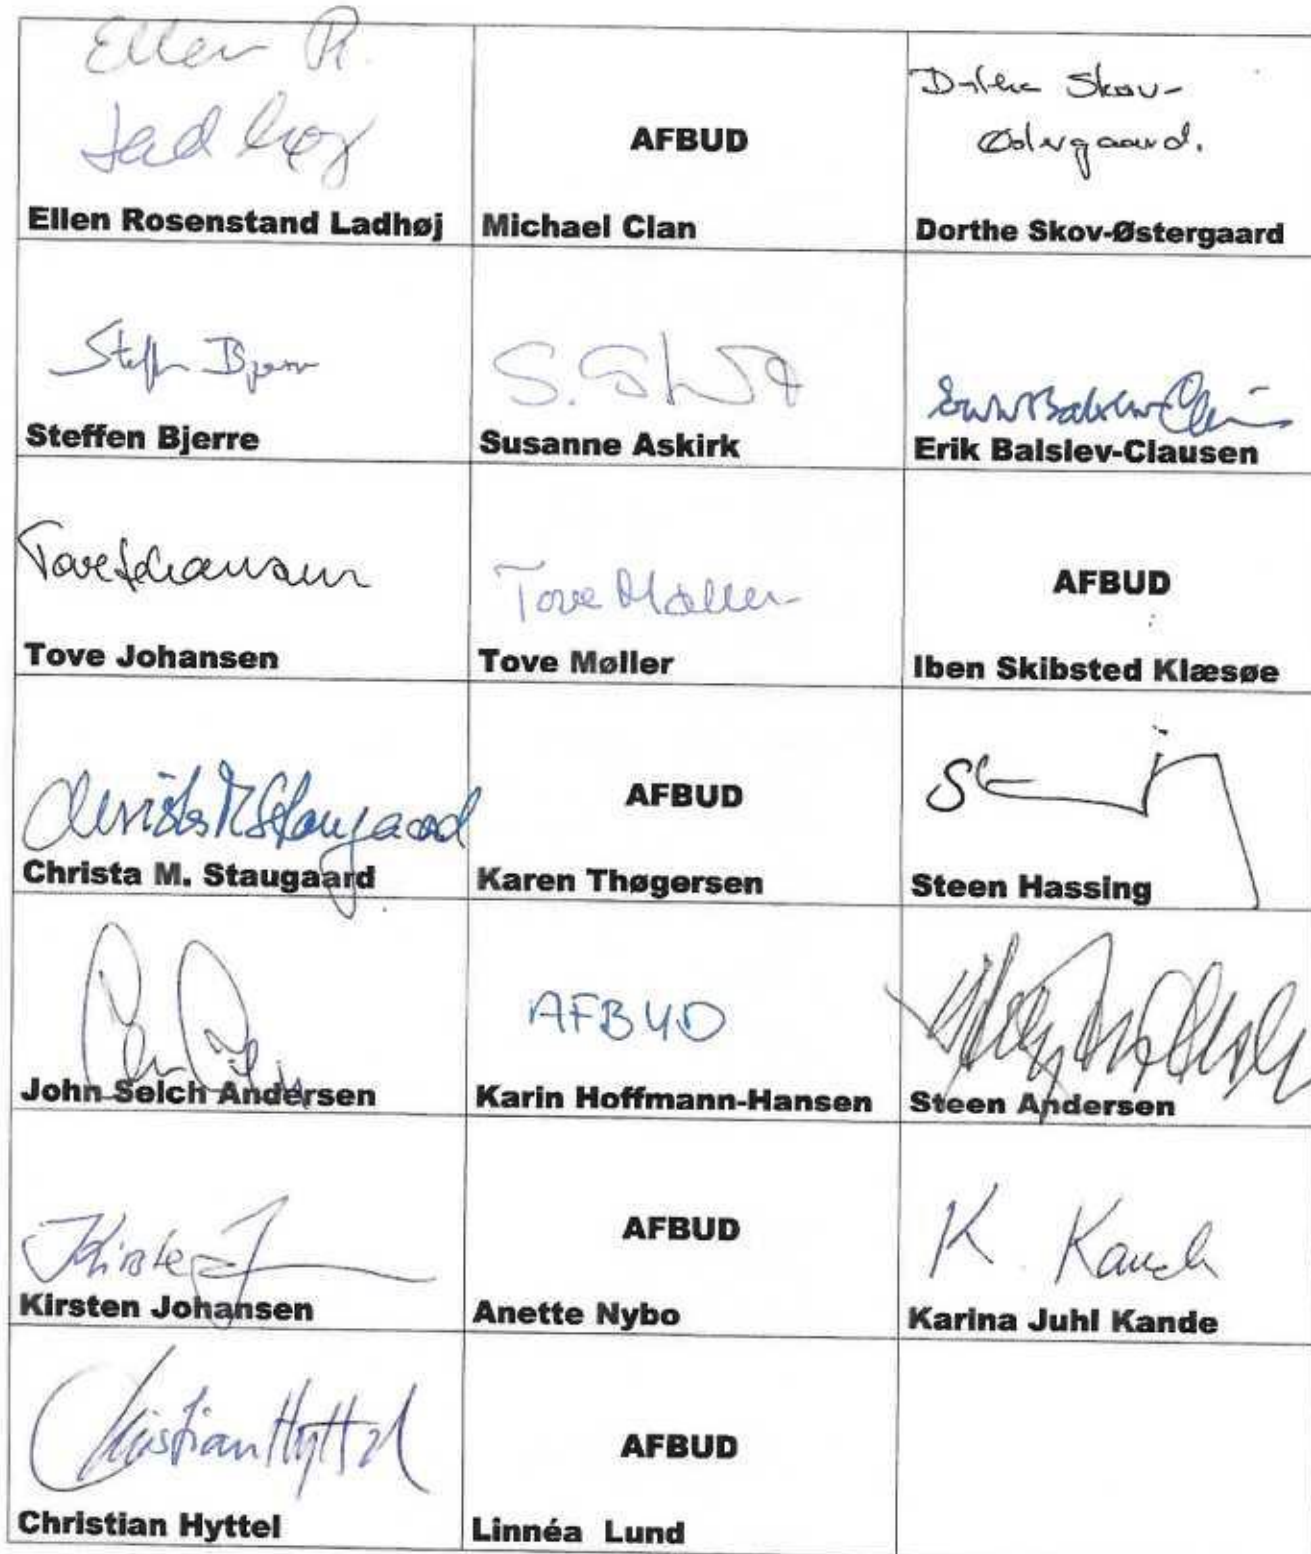 Ellen R.
Ladhøj
Ellen Rosenstand Ladhøj
AFBUD
Michael Clan
Dorthe Skov-
Østergaard.
Dorthe Skov-Østergaard
Steffen Bjerre
Steffen Bjerre
Susanne Askirk
Erik Balslev-Clausen
Erik Balslev-Clausen
Tove Johansen
Tove Johansen
Tove Møller
Tove Møller
AFBUD
Iben Skibsted Klæsøe
Christa M Staugaard
Christa M. Staugaard
AFBUD
Karen Thøgersen
Steen Hassing
John Selch Andersen
AFBUD
Karin Hoffmann-Hansen
Steen Andersen
Kirsten J
Kirsten Johansen
AFBUD
Anette Nybo
K. Kande
Karina Juhl Kande
Christian Hyttel
Christian Hyttel
AFBUD
Linnéa Lund